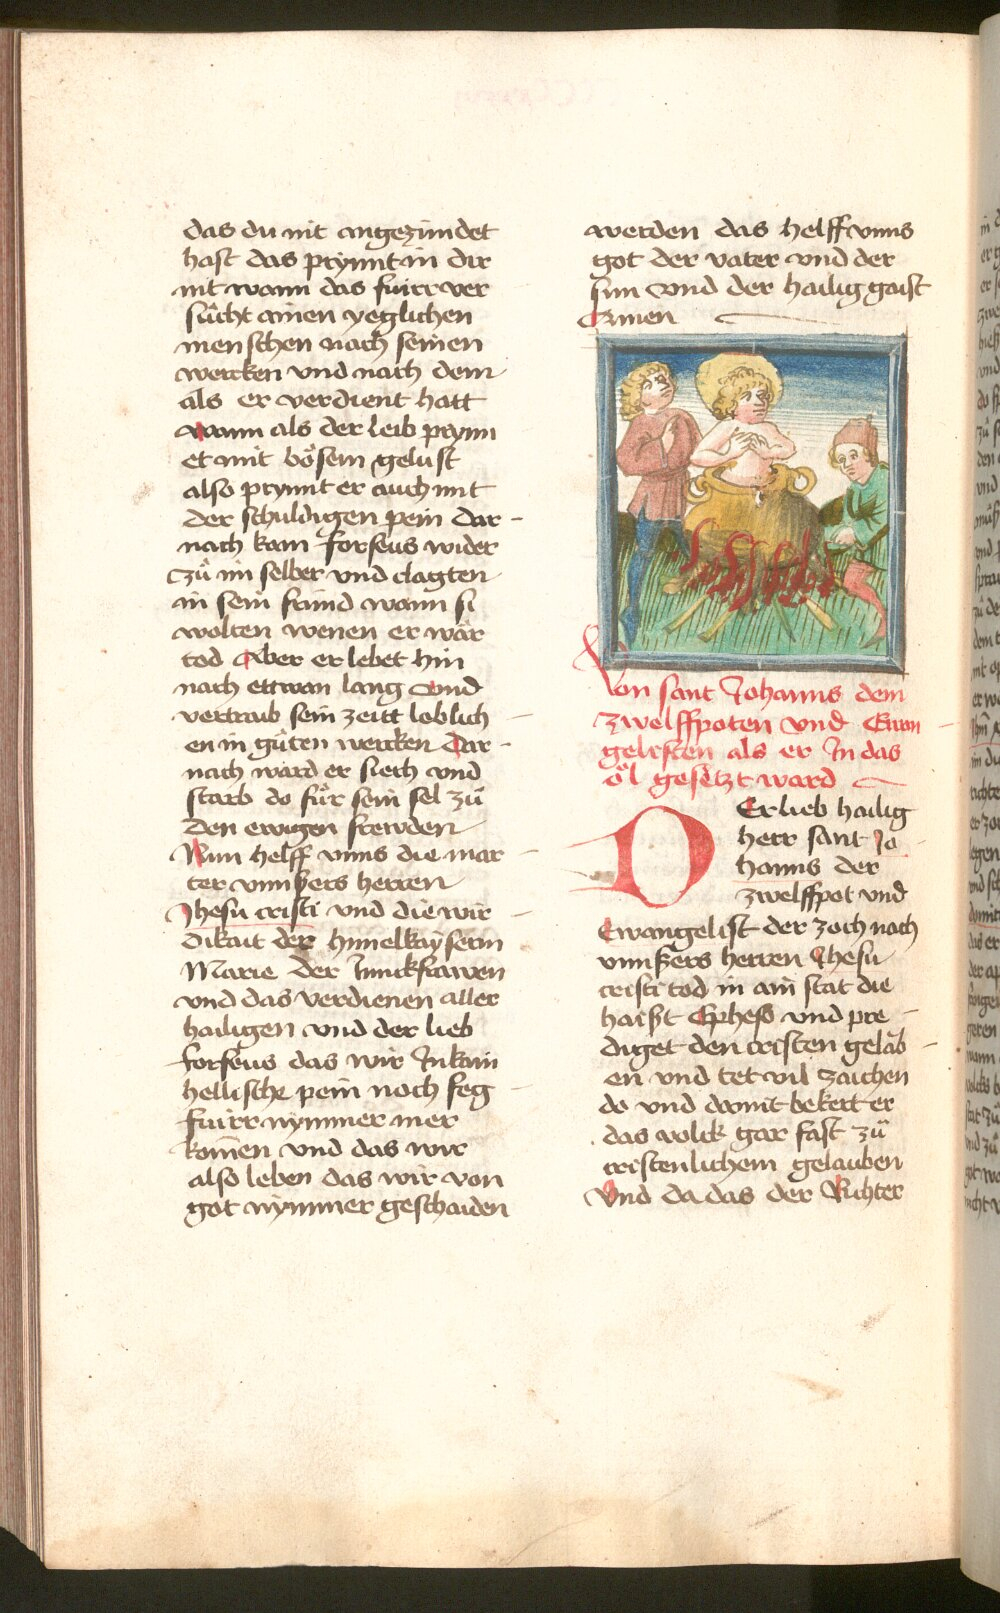 das du nit angezündet
hast das prÿnnt in dir
nit wann das fuirr ver
sůcht ainen yeglichen
menschen nach seinen
wercken vnd nach dem
als er verdient hatt
wann als der leib prynn
et mit bösem gelust
also prynnt er auch mit
der schuldigen pein dar
nach kam forseus wider
zů im selber vnd clagten
in sein fraind wann si
wolten wenen er wär
tod Aber er lebet hin
nach ettwan lang vnd
vertraib sein zeitt loblich
en in gůten wercken Dar
nach ward er siech vnd
starb do fůr sein sel zů
den ewigen frewden
Nun helff vnns die mar
ter vnnsers herren
Jhesu cristi vnd die wir
dikait der himelkaÿserin
Marie der Junckfrawen
vnd das verdienen aller
hailigen vnd der lieb
forseus das wir In kain
hellische pein noch feg
fuirr nymmer mer
komen vnd das wir
also leben das wir von
got nymmer geschaiden
werden das helff vnns
got der vater vnd der
sun vnd der hailig gaist
Amen
Von sant Johanns dem
zwelffpoten vnd Ewan
gelisten als er In das
öl gesetzt ward
DEr lieb hailig
herr sant Jo
hanns der
zwelffpot vnd
Ewangelist der zoch nach
vnnsers herren Jhesu
cristi tod in ain stat die
haisst Epheso vnd pre
diget den cristen gelab
en vnd tet vil zaichen
do vnd damit bekert er
das volck gar fast zů
cristenlichem gelauben
Vnd da das der Richter